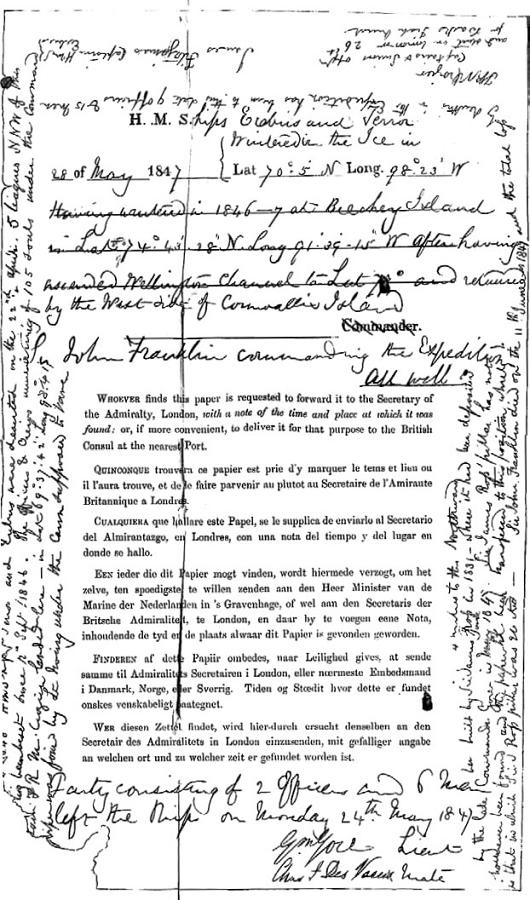 H. M. Ships Erebus and Terror
Wintered in the Ice in
28 of May 1847 Lat 70° 5' N Long. 98° 23' W
Having wintered in 1846-7 at Beechey Island
in Lat 74° 43' 28" N. Long 91° 39' 15" W After having
ascended Wellington Channel to Lat 77° and returned
by the West side of Cornwallis Island
Commander.
John Franklin commanding the Expedition
All well
WHOEVER finds this paper is requested to forward it to the Secretary of
the Admiralty, London, with a note of the time and place at which it was
found: or, if more convenient, to deliver it for that purpose to the British
Consul at the nearest Port.
QUINCONQUE trouvera ce papier est prie d'y marquer le tems et lieu ou
il l'aura trouve, et de le faire parvenir au plutot au Secretaire de l'Amiraute
Britannique a Londres.
CUALQUIERA que hallare este Papel, se le suplica de enviarlo al Secretario
del Almirantazgo, en Londres, con una nota del tiempo y del lugar en
donde se hallo.
EEN ieder die dit Papier mogt vinden, wordt hiermede verzogt, om het
zelve, ten spoedigste, te willen zenden aan den Heer Minister van de
Marine der Nederlanden in 's Gravenhage, of wel aan den Secretaris der
Britsche Admiraliteit, te London, en daar by te voegen eene Nota,
inhoudende de tyd en de plaats alwaar dit Papier is gevonden geworden.
FINDEREN af dette Papiir ombedes, naar Leilighed gives, at sende
samme til Admiralitets Secretairen i London, eller nærmeste Embedsmand
i Danmark, Norge, eller Sverrig. Tiden og Stœdit hvor dette er fundet
onskes venskabeligt paategnet.
WER diesen Zettel findet, wird hier-durch ersucht denselben an den
Secretair des Admiralitets in London einzusenden, mit gefalliger angabe
an welchen ort und zu welcher zeit er gefundet worden ist.
Party consisting of 2 Officers and 6 Men
left the Ships on Monday 24th May 1847
Gm Gore Lieut
Chas F Des Voeux Mate
Terror and Erebus were deserted on the 22nd April 5 leagues NNW of this
having been beset since 12th Septr 1846. The Officers & Crews consisting of 105 souls under the Command
F. R. M. Crozier landed here — in Lat 69° 37' 42" Long 98° 41'
paper was found by Lt Irving under the Cairn supposed to have
been built by Sir James Ross in 1831 – where it had been deposited
4 miles to the Northward
by the late Commander Gore in May 1847. Sir James Ross' pillar has not
however been found and the paper has been transferred to this position which
is that in which Sir J Ross' pillar was erected – Sir John Franklin died on the 11th June 1847 and the total loss
by deaths in the Expedition has been to this date 9 officers & 15 men
James Fitzjames Captain HMS
Erebus
F R M Crozier
Captain & Senior Offr
and start on tomorrow 26th
for Backs Fish River